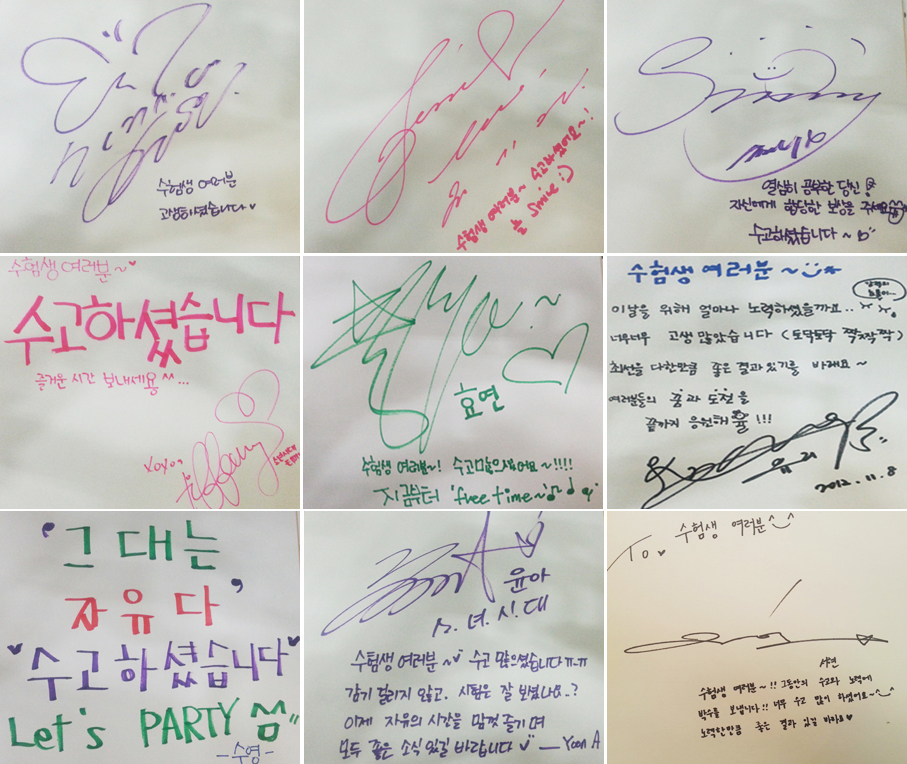 수험생 여러분
고생하셨습니다♥
수험생 여러분~ 수고하셨어요~!
늘 smile :)
Sunny
열심히 공부한 당신!
자신에게 합당한 보상을 주세요^^
수고하셨습니다~
수험생 여러분~♥
수고하셨습니다
즐거운 시간 보내세용^^...
xoxo,
tiffany
Hyo~
효연
수험생 여러분~! 수고많으셨어요~!!!!
지금부터 'free time~'
수험생 여러분~
이날을 위해 얼마나 노력하였을까요..
너무너무 고생 많았습니다 (토닥토닥 짝짝짝)
최선을 다한만큼 좋은 결과 있기를 바래요~
여러분들의 꿈과 도전을
끝까지 응원해율!!!
유리
2012.11.8
'그대는
자유다'
"수고하셨습니다"
Let's PARTY
-수영-
윤아
소.녀.시.대
수험생 여러분~ 수고 많으셨습니다ㅠㅠ
감기 걸리지 않고. 시험은 잘 보셨나요..?
이제 자유의 시간을 맘껏 즐기며
모두 좋은 소식 있길 바랍니다 — Yoon A
To♥ 수험생 여러분^‿^
서현
수험생 여러분~!! 그동안의 수고와 노력에
박수를 보냅니다!! 너무 수고 많이 하셨어요~^‿^
노력한만큼 좋은 결과 있길 바라요♥